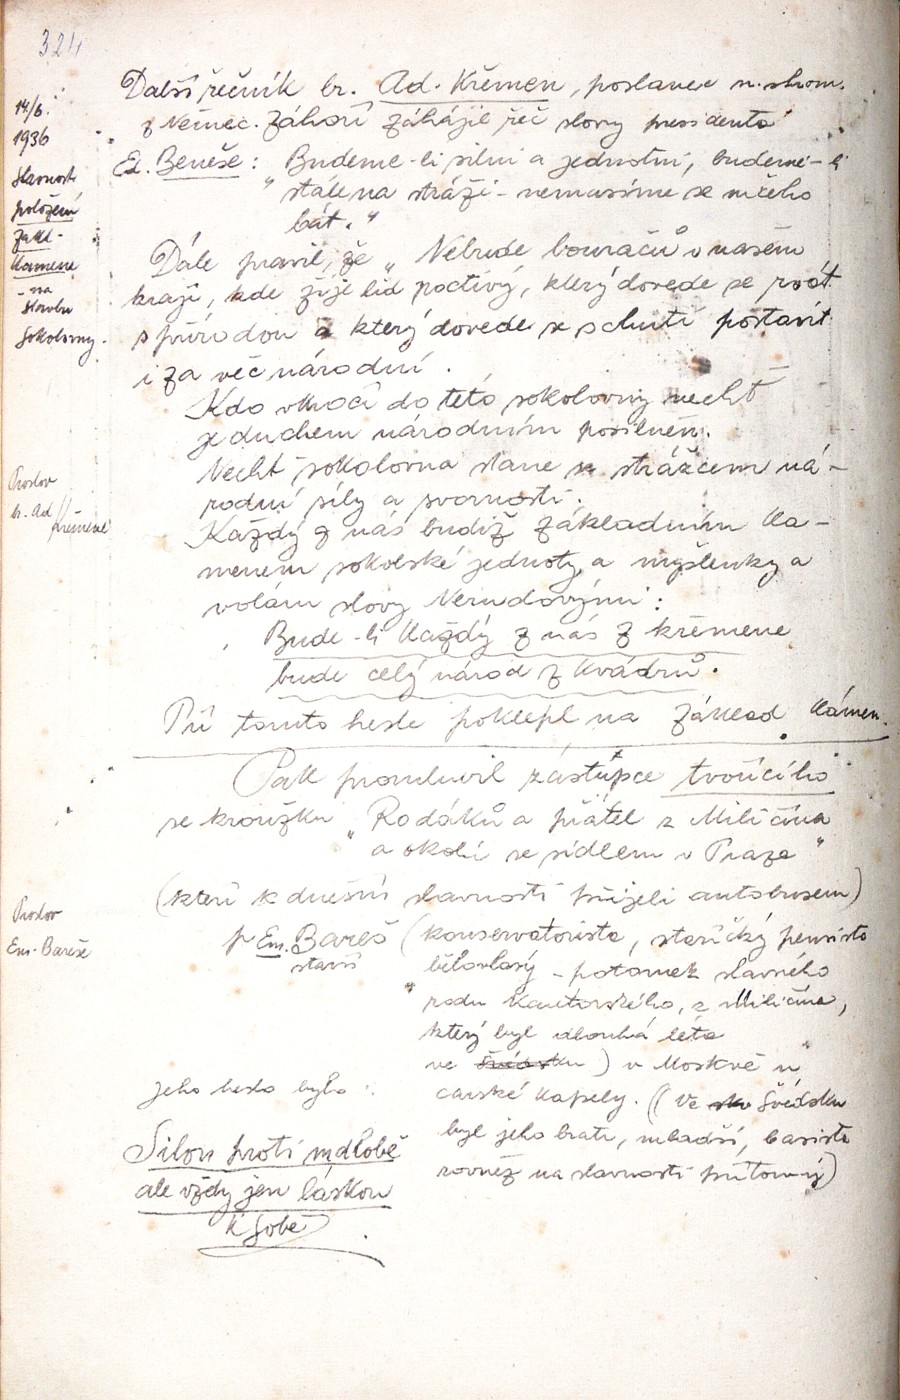 324
14/6.
1936
Slavnost
položení
zákl-
kamene
- na
stavbu
Sokolovny.
Další řečník br. Ad. Křemen, poslanec n. shrom.
z Němec. Záhoří zahájil řeč slovy presidenta
Ed. Beneše: „Budeme-li silni a jednotni, budeme-li
stále na stráži - nemusíme se ničeho
bát."
Dále pravil, že „Nebude bouračů v našem
kraji, kde žije lid poctivý, který dovede se rvát
s přírodou a který dovede se s chutí postavit
i za věc národní.
Kdo vkročí do této sokolovny nechť
je duchem národním posilněn.
Nechť sokolovna stane se strážcem ná-
rodní síly a svornosti.
Každý z nás budiž základním ka-
menem sokolské jednoty a myšlenky a
volám slovy Nerudovými:
Bude-li každý z nás z křemene
bude celý národ z kvádrů.
Při tomto hesle poklepl na základ. kámen.
Proslov
br. Ad Křemene
Pak promluvil zástupce tvořícího
se kroužku „Rodáků a přátel z Miličína
a okolí se sídlem v Praze"
(kteří k dnešní slavnosti přijeli autobusem)
Proslov
Em. Bareše
p Em. Bareš (konservatorista, stařičký pensista
starší
bělovlasý - potomek slavného
rodu kantorského, z Miličína,
který byl dlouhá léta
ve Švédsku) v Moskvě u
carské kapely. (Ve Švédsku
byl jeho bratr, mladší, basista
rovněž na slavnosti přítomný)
Jeho heslo bylo:
Silou proti mdlobě
ale vždy jen láskou
k Sobě.